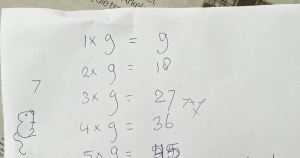 1 x 9 = 9
2 x 9 = 18
7
3 x 9 = 27
4 x 9 = 36
5 x 9 = 45